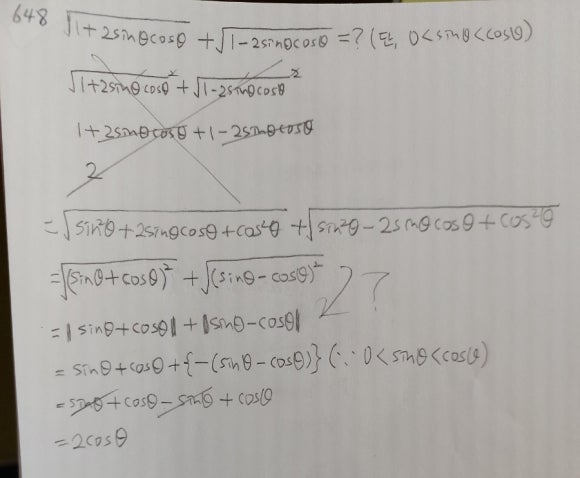 648 √(1+2sinθcosθ) + √(1-2sinθcosθ) = ? (단, 0<sinθ<cosθ)
√(1+2sinθcosθ)² + √(1-2sinθcosθ)²
1+2sinθcosθ+1-2sinθcosθ
2
= √(sin²θ+2sinθcosθ+cos²θ) + √(sin²θ-2sinθcosθ+cos²θ)
= √(sinθ+cosθ)² + √(sinθ-cosθ)²
?
= |sinθ+cosθ| + |sinθ-cosθ|
= sinθ+cosθ+{-(sinθ-cosθ)} (∵ 0<sinθ<cosθ)
= sinθ+cosθ-sinθ+cosθ
= 2cosθ